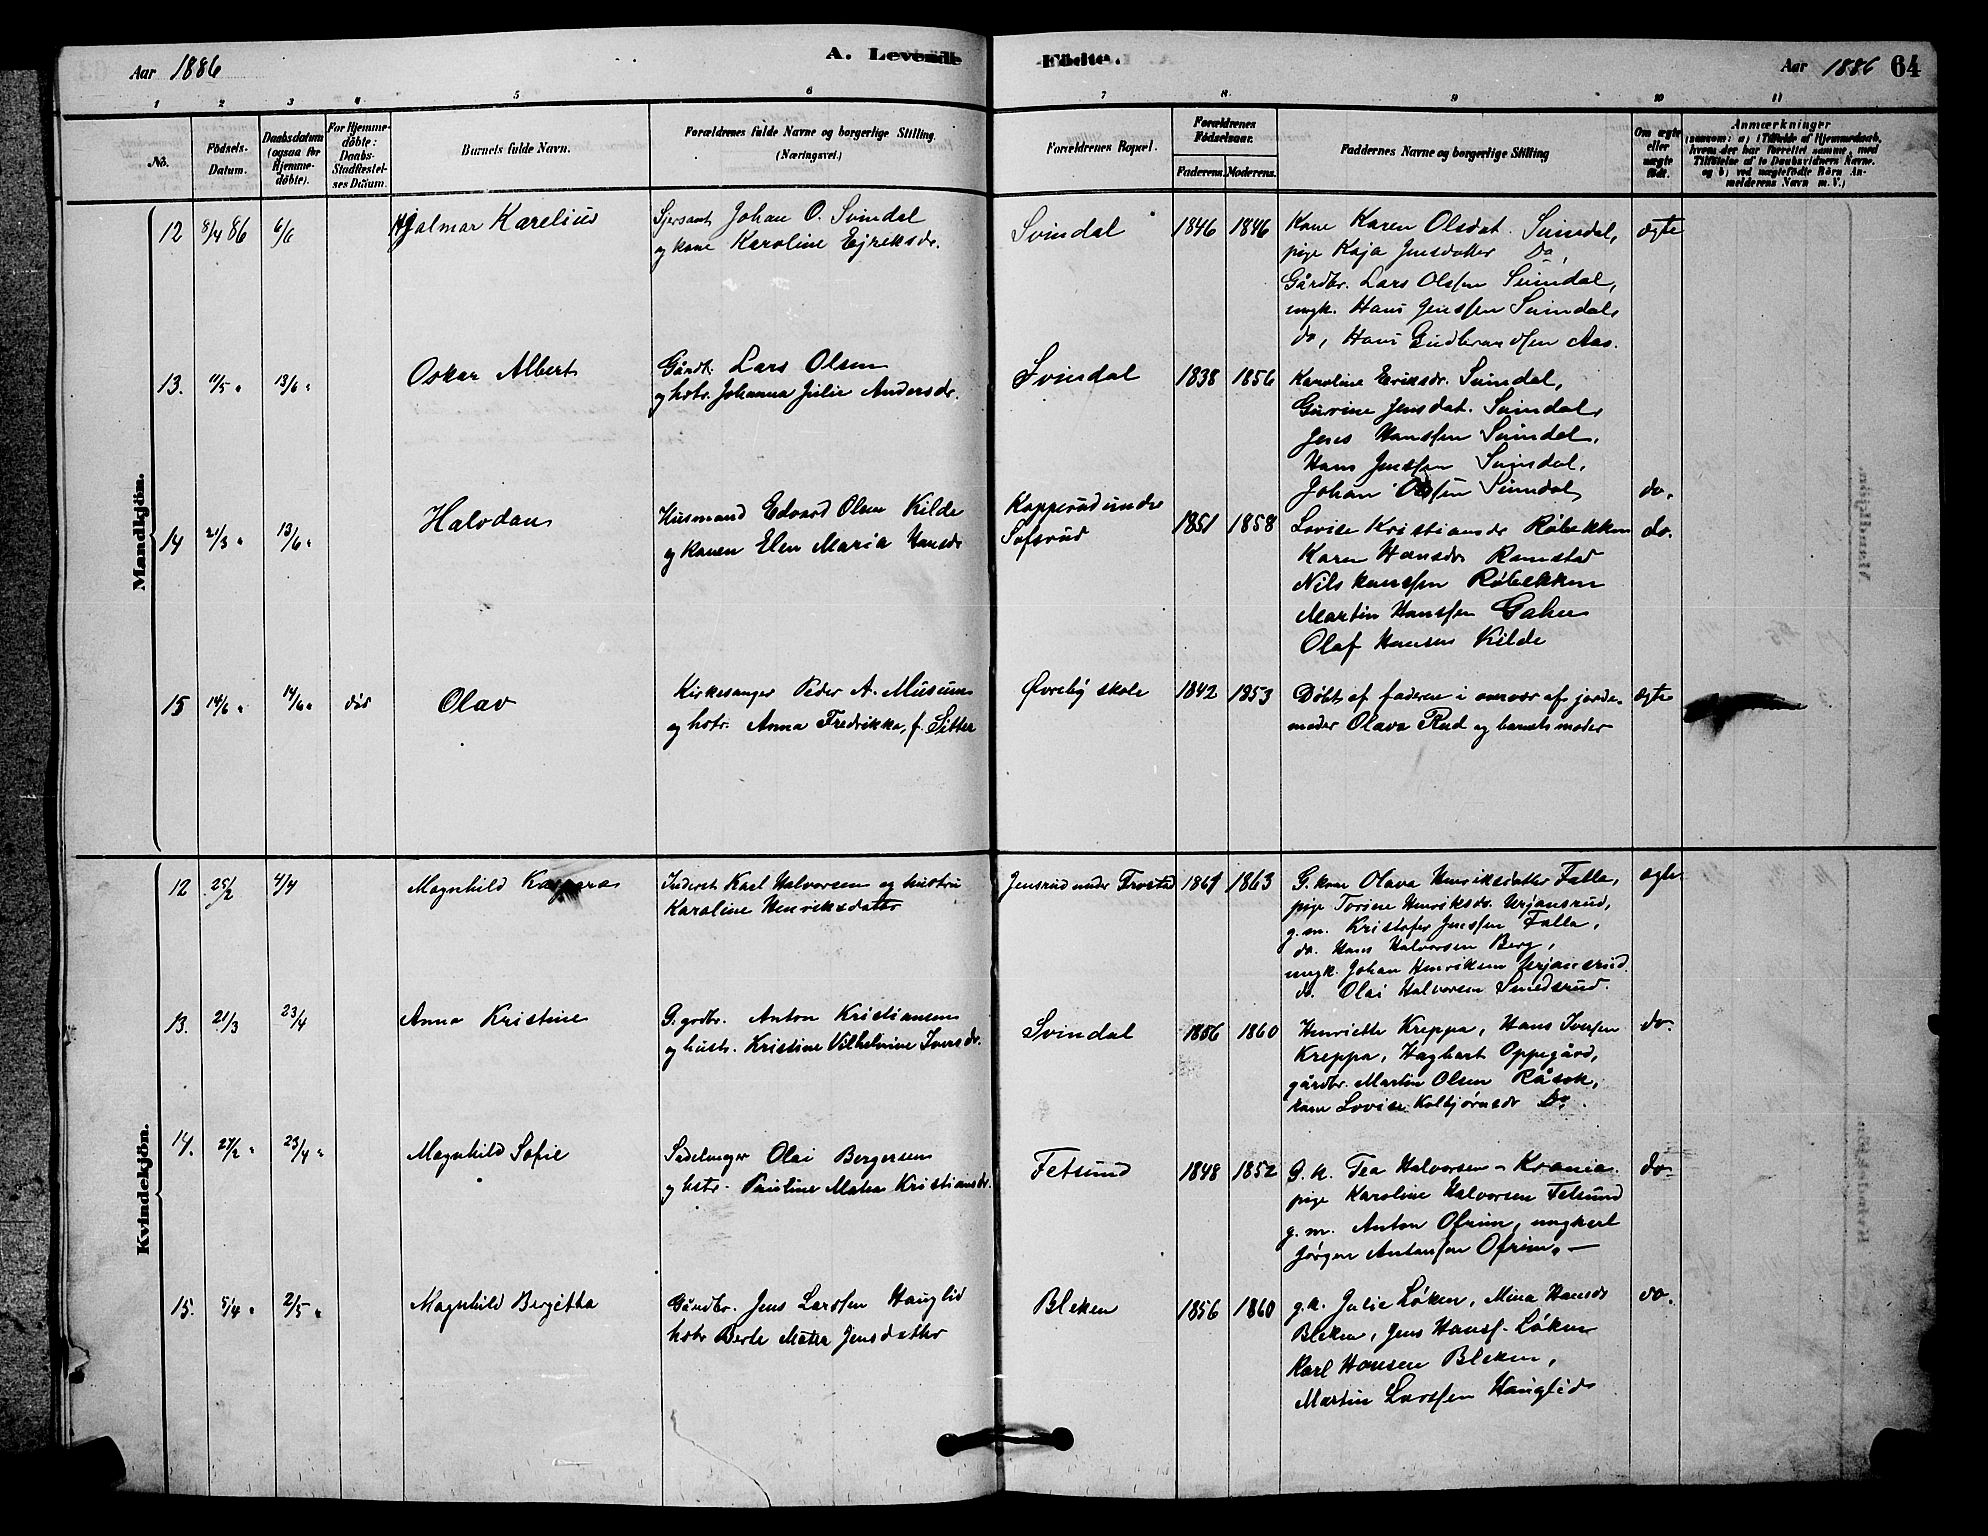 Aar 1886
A. Levende Födte.
Aar 1886 64
1 2 3 4 5 6 7 8 9 10 11
No.
Födsels-
Datum.
Daabsdatum
(ogsaa for
Hjemme-
döbte).
For Hjemme-
döbte:
Daabs-
Stadfæstel-
ses Datum.
Barnets fulde Navn.
Forældrenes fulde Navne og borgerlige Stilling
(Næringsvei.)
Forældrenes Bopæl.
Forældrenes
Födselsaar.
Faderens. Moderens.
Faddernes Navne og borgerlige Stilling
Om ægte
eller
uægte
födt.
Anmærkninger
(saasom: a) i Tilfælde af Hjemmedaab,
hvem der har forrettet samme, med
Tilföielse af to Daabsvidners Navne.
og b) ved uægtefödte Börn An-
melderens Navn m. V.)
Mandkjön.
12 8/4 86 6/6
Hjalmar Karelius
Johan O. Svindal
og kone Karoline Ejriksdr.
Svindal
1846 1846
Kone Karen Olsdat. Svindal,
pige Kaja Jensdatter Do,
Gårdbr. Lars Olssen Svindal,
ungk. Hans Jenssen Svindal,
do, Hans Gudbrandssen Aas.
ægte
13. 11/5 " 13/6 "
Oskar Albert
Gårdbr. Lars Olsen
og hstr. Johanna Julie Andersdr.
Svindal
1838 1856
Karoline Eriksdr. Svindal,
Gurine Jensdat. Svindal,
Jens Hanssen Svindal,
Hans Jenssen Svindal,
Johan Olssen Svindal,
do.
14 21/3 " 13/6 "
Halvdan
Husmand Edvard Olsen Kilde
og konen Elen Maria Hansdr
Kopperud under
Sofsrud
1851 1858
Lovise Kristiansdr Røbekken
Karen Hansdr Ramstad
Nils Hanssen Røbekken
Martin Hanssen
Olaf Hansen Kilde
do.
15 14/6 " 14/6 " død
Olav
Kirkesanger Peder A. Musum
og hstr. Anna Fredrikka, f. Sitter
Øvreby skole
1842 1853
Døbt af faderen i overvær af jorde-
moder Olava Rud og barnets moder
ægte
Kvindekjön.
12 25/2 4/4
Magnhild Kaspara
Inderst Karl Halvorsen og hustru
Karoline Henriksdatter
Jensrud under Frostad
1861 1863
G. kone Olava Henriksdatter Falla,
pige Torine Henriksdr. Ørjansrud,
g. m. Kristofer Jenssen Falla,
do. Hans Halvorsen Berg,
ungk. Johan Henriksen Ørjansrud.
do. Olai Halvorsen Smedsrud.
ægte
13. 21/3 23/4
Anna Kristine
G. grdbr. Anton Kristiansen
og hustr. Kristine Vilhelmine Iversdr.
Svindal
1856 1860
Henriette Kreppa, Hans Iversen
Kreppa, Hagbart Oppegård,
gårdbr. Martin Olsen Råsok,
kone Lovise Kolbjørnsdr Do.
do.
14. 27/2 " 23/4 "
Magnhild Sofie
Sadelmager Olai Bergersen
og hstr. Pauline Mathea Kristiansdr.
Fetsund
1848 1852
G. k. Tea Halvorsen - Krania.
pige Karoline Halvorsen Fetsund
g. m. Anton Ofrim, ungkarl
Jørgen Antonsen Ofrim. —
do
15. 5/4 " 2/5 "
Magnhild Bergitta
Gårdbr. Jens Larssen Hauglid
hstr Berte Mathea Jensdatter
Bleken
1856 1860
g. k. Julie Løken, Mina Hansdr
Bleken, Jens Hanss. Løken
Karl Hansen Bleken,
Martin Larssen Hauglid
do.